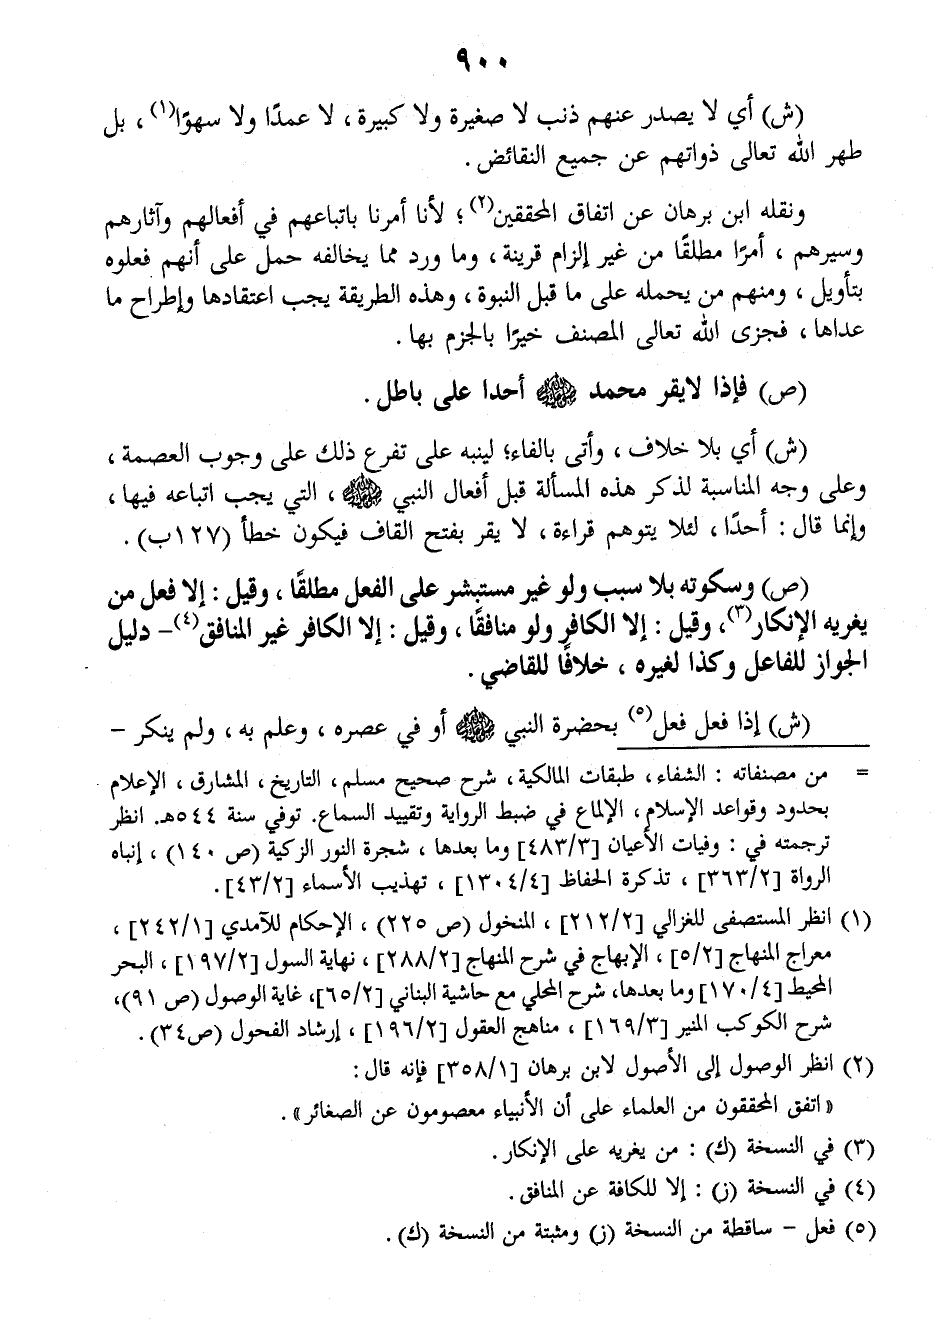 ٩٠٠
(ش) أي لا يصدر عنهم ذنب لا صغيرة ولا كبيرة ، لا عمدًا ولا سهوًا(١) ، بل
طهر الله تعالى ذواتهم عن جميع النقائض .
ونقله ابن برهان عن اتفاق المحققين(٢) ؛ لأنا أمرنا باتباعهم في أفعالهم وآثارهم
وسيرهم ، أمرًا مطلقًا من غير إلزام قرينة ، وما ورد مما يخالفه حمل على أنهم فعلوه
بتأويل ، ومنهم من يحمله على ما قبل النبوة ، وهذه الطريقة يجب اعتقادها وإطراح ما
عداها ، فجزى الله تعالى المصنف خيرًا بالجزم بها .
(ص) فإذا لايقر محمد ﷺ أحدا على باطل .
(ش) أي بلا خلاف ، وأتى بالفاء؛ لينبه على تفرع ذلك على وجوب العصمة ،
وعلى وجه المناسبة لذكر هذه المسألة قبل أفعال النبي ﷺ ، التي يجب اتباعه فيها ،
وإنما قال : أحدًا ، لئلا يتوهم قراءة ، لا يقر بفتح القاف فيكون خطأ (١٢٧ب) .
(ص) وسكوته بلا سبب ولو غير مستبشر على الفعل مطلقًا ، وقيل : إلا فعل من
يغريه الإنكار(٣)، وقيل : إلا الكافر ولو منافقًا ، وقيل : إلا الكافر غير المنافق(٤)– دليل
الجواز للفاعل وكذا لغيره ، خلافًا للقاضي .
(ش) إذا فعل فعل(٥) بحضرة النبي ﷺ أو في عصره ، وعلم به ، ولم ينكر –
= من مصنفاته : الشفاء ، طبقات المالكية ، شرح صحيح مسلم ، التاريخ ، المشارق ، الإعلام
بحدود وقواعد الإسلام ، الإلماع في ضبط الرواية وتقييد السماع. توفي سنة ٥٤٤هـ. انظر
ترجمته في : وفيات الأعيان [٤٨٣/٣] وما بعدها ، شجرة النور الزكية (ص ١٤٠) ، إنباه
الرواة [٣٦٣/٢] ، تذكرة الحفاظ [١٣٠٤/٤] ، تهذيب الأسماء [٤٣/٢] .
(١) انظر المستصفى للغزالي [٢١٢/٢] ، المنخول (ص ٢٢٥) ، الإحكام للآمدي [٢٤٢/١] ،
معراج المنهاج [٥/٢] ، الإبهاج في شرح المنهاج [٢٨٨/٢] ، نهاية السول [١٩٧/٢] ، البحر
المحيط [١٧٠/٤] وما بعدها، شرح المحلي مع حاشية البناني [٦٥/٢]، غاية الوصول (ص ٩١)،
شرح الكوكب المنير [١٦٩/٣] ، مناهج العقول [١٩٦/٢] ، إرشاد الفحول (ص٣٤) .
(٢) انظر الوصول إلى الأصول لابن برهان [٣٥٨/١] فإنه قال :
« اتفق المحققون من العلماء على أن الأنبياء معصومون عن الصغائر » .
(٣) في النسخة (ك) : من يغريه على الإنكار .
(٤) في النسخة (ز) : إلا للكافة عن المنافق .
(٥) فعل – ساقطة من النسخة (ز) ومثبتة من النسخة (ك) .